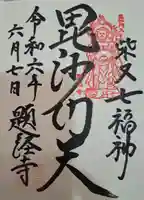 柴又七福神
毘沙门天
令和六年
六月七日
題経寺